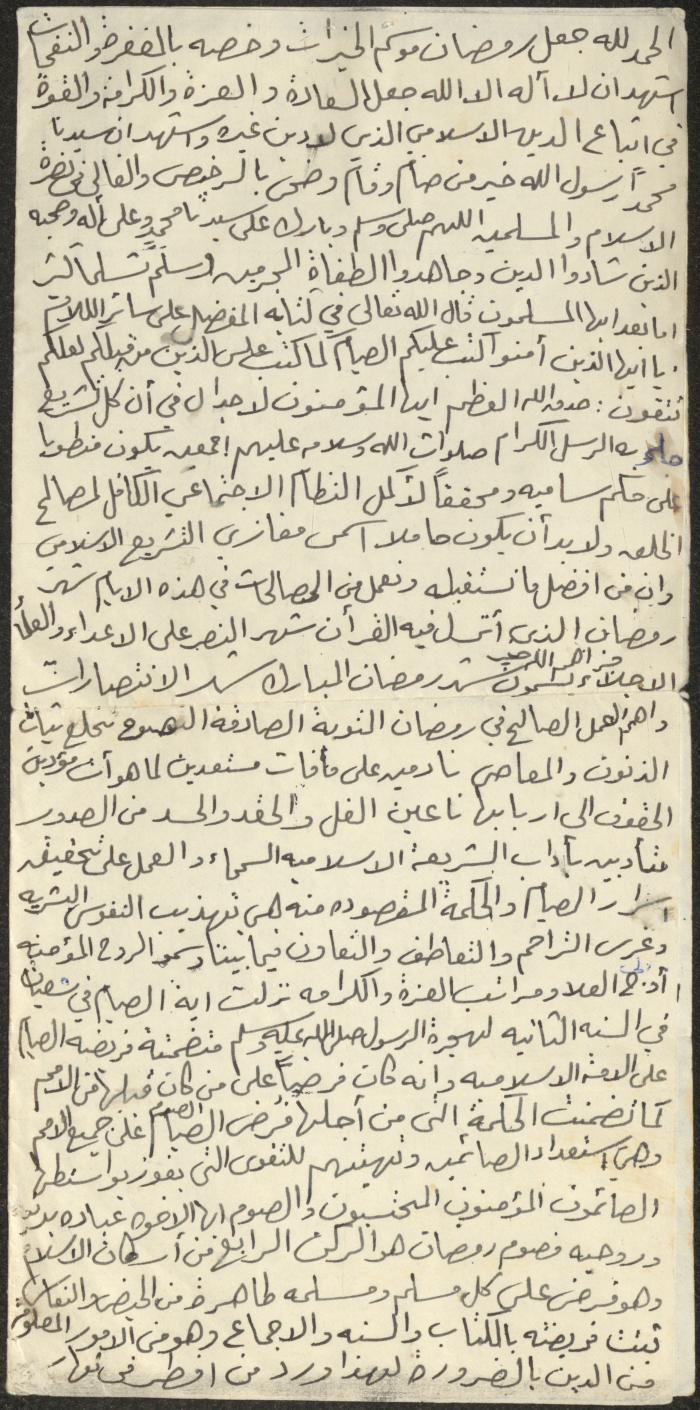 الحمد لله جعل رمضان موكم الخيرات وخصه بالمغفرة والنفحات
اشهد ان لا اله الا الله جعل السعادة والعزة والكرامة والقوة
في اتباع الدين الاسلامي الذي لا دين غيره واشهد ان سيدنا
محمداً رسول الله خير من صام وقام وضحى بالرخيص والغالي في نصرة
الاسلام والمسلمين اللهم صلي وسلم وبارك على سيدنا محمدٍ وعلى أله وصحبه
الذين شادوا الدين وجاهدوا الطغاة المجرمين وسلم تسلماً كثير
اما بعد ايها المسلمون قال الله تعالى في كتابه المفضل على سائر الكلام
يا ايها الذين أمنوا كتب عليكم الصيام كما كتب على الذين من قبلكم لعلكم
تتقون: صدق الله العظيم ايها المؤمنون لا جدال في أن كل تشريع
جاء به الرسل الكرام صلوات الله وسلامه عليهم اجمعين يكون منطويا
على حكم ساميه ومحققاً لأكمل النظام الاجتماعي الكافل لمصالح
الخلق ولا بد أن يكون حاملا اسمى مغازي التشريع الاسلامي
وان من افضل ما نستقبله ونعمل من الصالحات في هذه الايام شهر
رمضان الذي أنزل فيه القرأن شهر النصر على الاعداء والعلماء
الاجلاء يسمون شهر رمضان المبارك شهر الانتصارات
واهم العمل الصالح في رمضان التوبة الصادقة النصوح نخلع ثياب
الذنوب والمعاصي نادمين على مافات مستعدين لما هو أت مؤدين
الحقوق الى اربابها ناعين الغل والحقد والحسد من الصدور
متأدبين بأداب الشريعة الاسلاميه السمحاء والعمل على تحقيق
اسرار الصيام والحكمة المقصوده منه هي تهذيب النفوس البشريه
وغرس التراحم والتعاطف والتعاون فيما بيننا وسمو الروح المؤمنه
أوج العلا ومراتب العزة والكرامه نزلت اية الصيام في شعبان
في السنه الثانيه لهجرة الرسول صلى الله عليه وسلم متضمنة فريضه الصيام
على الامة الاسلاميه وانه كان فرضياً على من كان قبلها من الامم
كما تضمنت الحكمة التي من أجلها فرض الصيام على جميع الامم
وهي استعداد الصائمين وتهيئتهم للتقوى التي يفوز بواسطتها
الصائمون المؤمنون المحتسبون والصوم ايها الاخوه عباده بدنيه
وروحيه فصوم رمضان هو الركن الرابع من أركان الاسلام
وهو فرض على كل مسلم ومسلمه طاهرة من الحيض والنفاس
ثبتت فريضته بالكتاب والسنه والاجماع وهو من الامور المعلومة
من الدين بالضرورة لهذا ورد من افطر في نهار